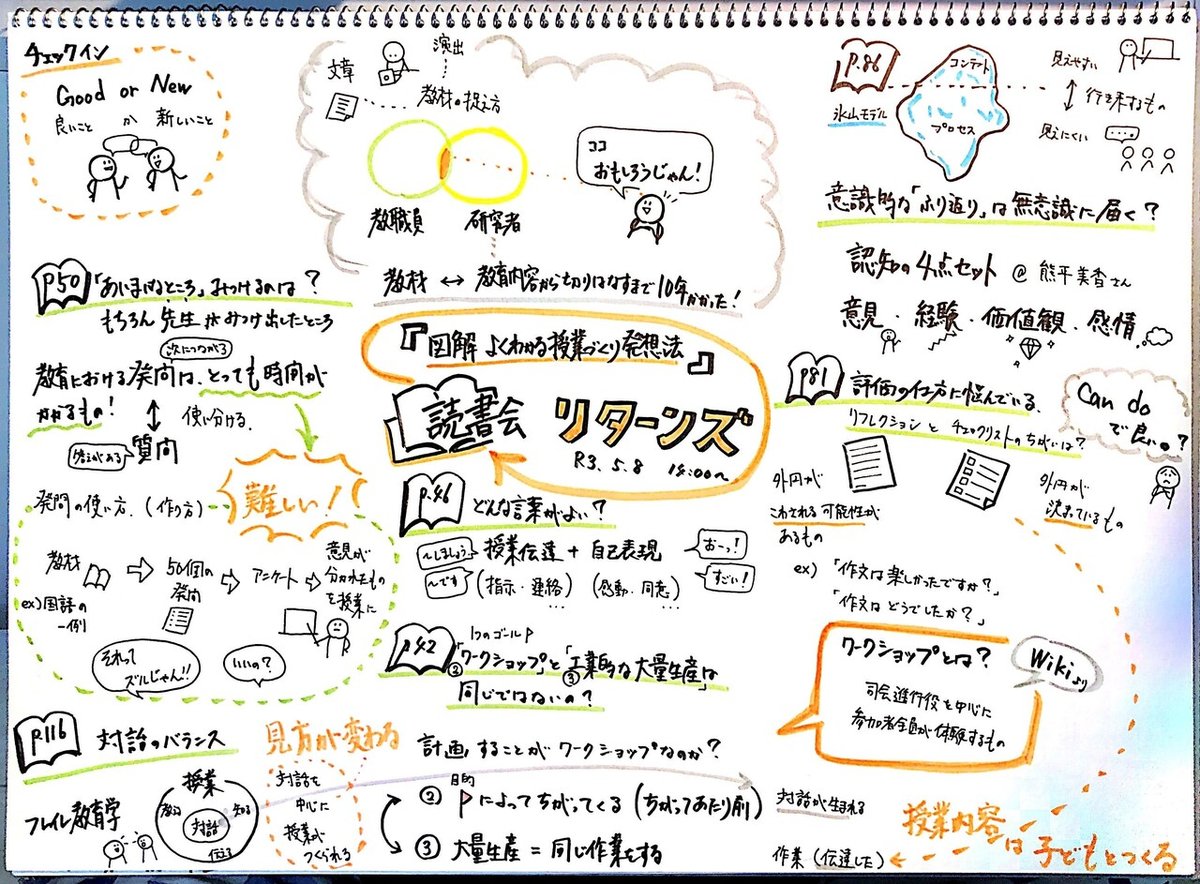 チェックイン
Good or New
良いこと か 新しいこと
文章
演出
教材の捉え方
教職員
研究者
ココ
おもしろうじゃん!
教材 ↔ 教育内容から切りはなすまで10年かかった!
P.86
氷山モデル
コンテント
プロセス
見えやすい
行き来するもの
見えにくい
意識的な「ふり返り」は無意識に届く?
認知の4点セット @熊平美香さん
意見・経験・価値観・感情
P50
「あいまいなところ」みつけるのは?
もちろん先生がみつけ出したところ
次につながる
教育における発問は、とっても時間が
かかるもの!
使い分ける。
答えがある
質問
難しい!
発問の使い方、(作り方)
教材
50個の
発問
アンケート
意見が
分かれたもの
を授業に
ex)国語の
一例
それって
ズルじゃん!!
いいの?
『図解 よくわかる授業づくり発想法』
読書会
リターンズ
R3.5.8 18:00〜
P.46
どんな言葉がよい?
〜しましょう
授業伝達 + 自己表現
おーっ!
〜です
(指示・連絡)
(感動・同意)
すごい!
P.42
1つのゴール
②「ワークショップ」と「③工業的な大量生産」は
同じではないの?
計画することがワークショップなのか?
目的
② によってちがってくる(ちがってあたり前)
③ 大量生産=同じ作業をする
対話が生まれる
作業(伝達した)
P81
評価の仕方に悩んでいる。
リフレクションとチェックリストのちがいは?
Can do
で良いの?
外円が
こわされる可能性が
あるもの
外円が
決まっているもの
ex)「作文は楽しかったですか?」
「作文はどうでしたか?」
ワークショップとは?
Wikiより
司会進行役を中心に
参加者全員が体験するもの
授業内容
は子どもとつくる
P.116
対話のバランス
見方が変わる
フレイレ教育学
授業
教る
知る
対話
伝える
対話を
中心に
授業が
つくられる